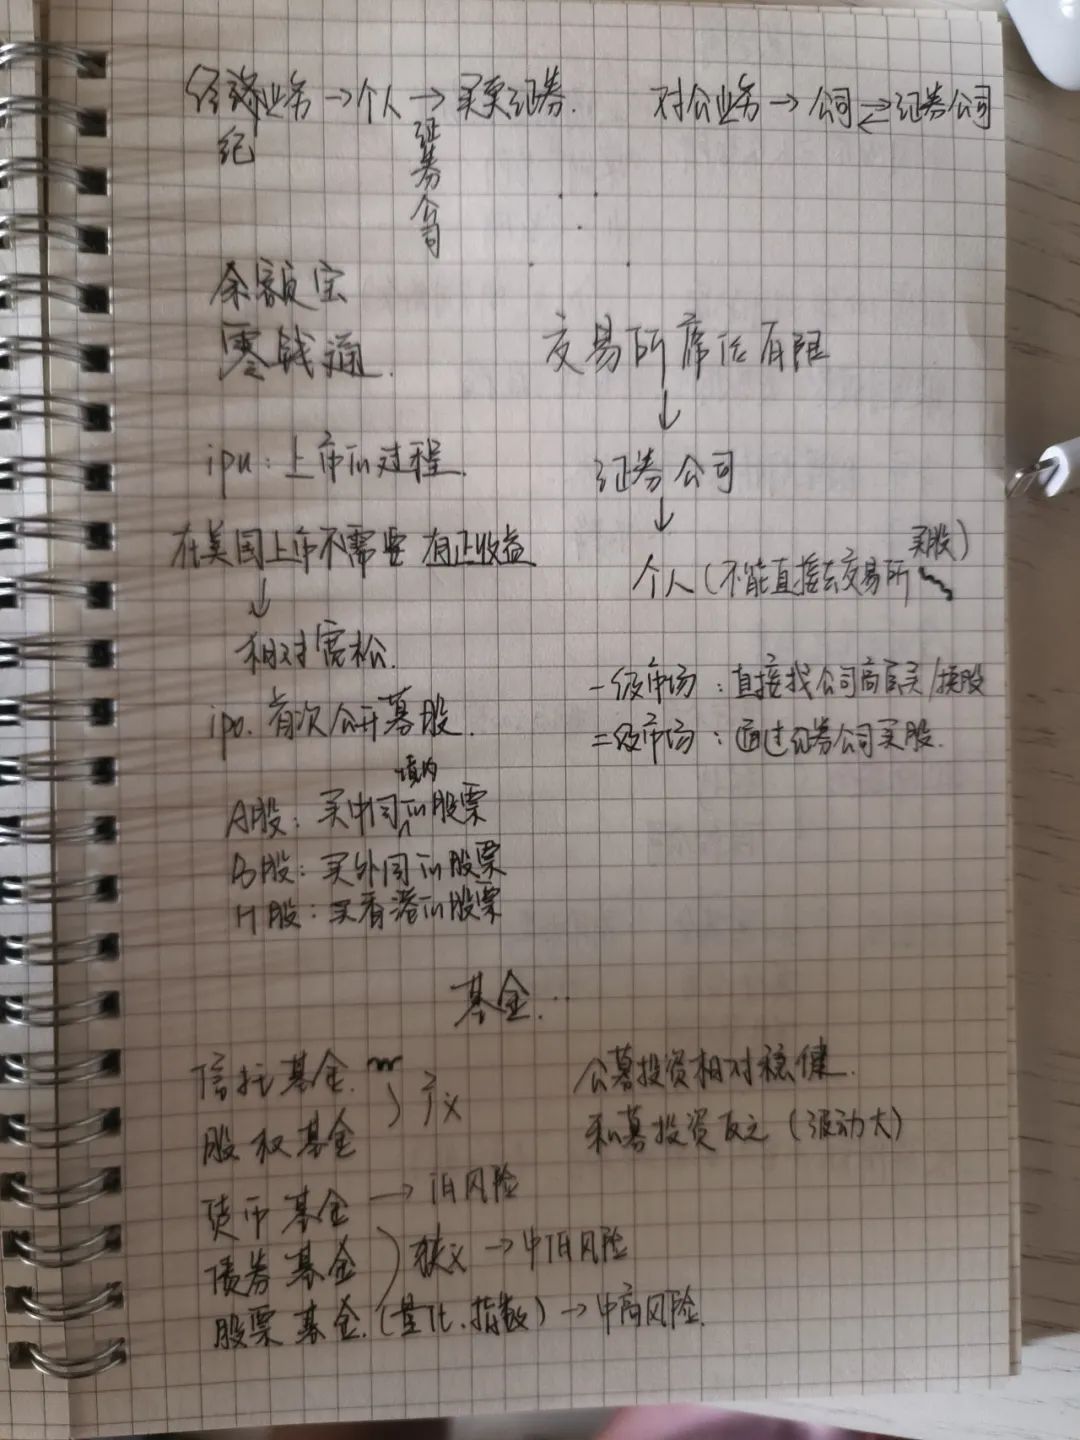 经济业务→个人→买卖证券.
纪
证券公司
对公业务→公司⇄证券公司
余额宝
零钱通.
交易所席位有限
↓
证券公司
↓
个人(不能直接去交易所买股)
ipu:上市的过程.
在美国上市不需要有正收益
↓
相对宽松.
ipo.首次公开募股.
一级市场:直接找公司商量买/换股
二级市场:通过证券公司买股.
境内
A股:买中国的股票
B股:买外国的股票
H股:买香港的股票
基金..
信托基金.
股权基金
广义
货币基金→低风险
债券基金
狭义→中低风险
股票基金.(量化、指数)→中高风险.
公募投资相对稳健.
私募投资反之(波动大)